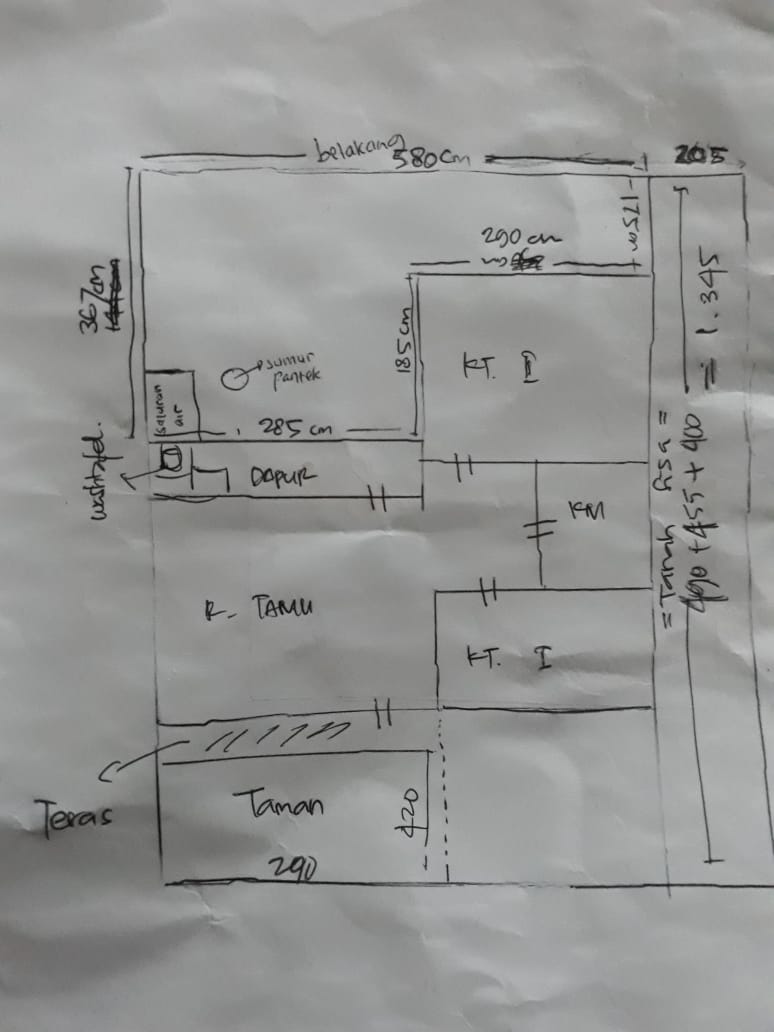 belakang
580cm
205
175cm
290 cm
367cm
185cm
KT. II
sumur
pantek
saluran
air
285 cm
washtafel.
DAPUR
KM
R. TAMU
KT. I
= Tanah sisa =
490 + 455 + 400 = 1.345
Teras
Taman
420
290